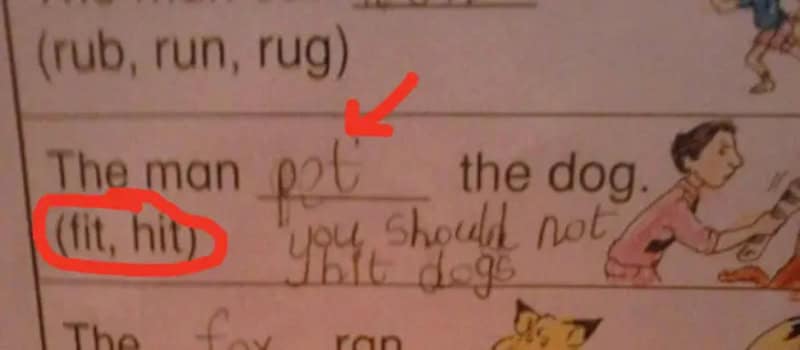 (rub, run, rug)
The man pot the dog.
(fit, hit)
you should not
hit dogs
The fox ran